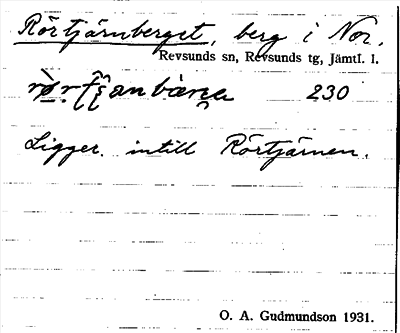 Rörtjärnberget, berg i Nor.
Revsunds sn, Revsunds tg, Jämtl. l.
230
Ligger intill Rörtjärnen.
O. A. Gudmundson 1931.